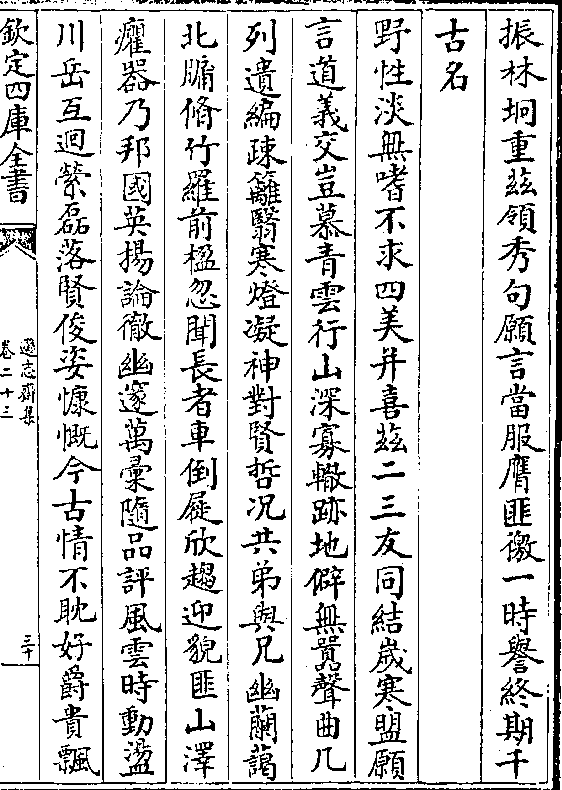 振林坰重茲領秀句願言當服膺匪徼一時譽終期千
古名
野性淡無嗜不求四美并喜茲二三友同結歲寒盟願
言道義交豈慕青雲行山深寡轍跡地僻無囂聲曲几
列遺編疎籬翳寒燈凝神對賢哲況共弟與兄幽蘭藹
北牖脩竹羅前楹忽聞長者車倒屣欣趨迎貌匪山澤
癯器乃邦國英揚論徹幽邃萬彚隨品評風雲時動盪
川岳互迴縈磊落賢俊姿慷慨今古情不耽好爵貴飄
欽定四庫全書
遜志齋集
卷二十三
三十